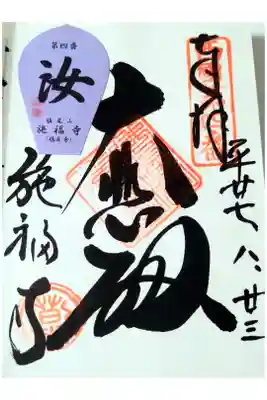 奉拝
平廿七 八、廿三
大悲殿
施福寺
第四番
汝
槇尾山
施福寺
(槇尾寺)